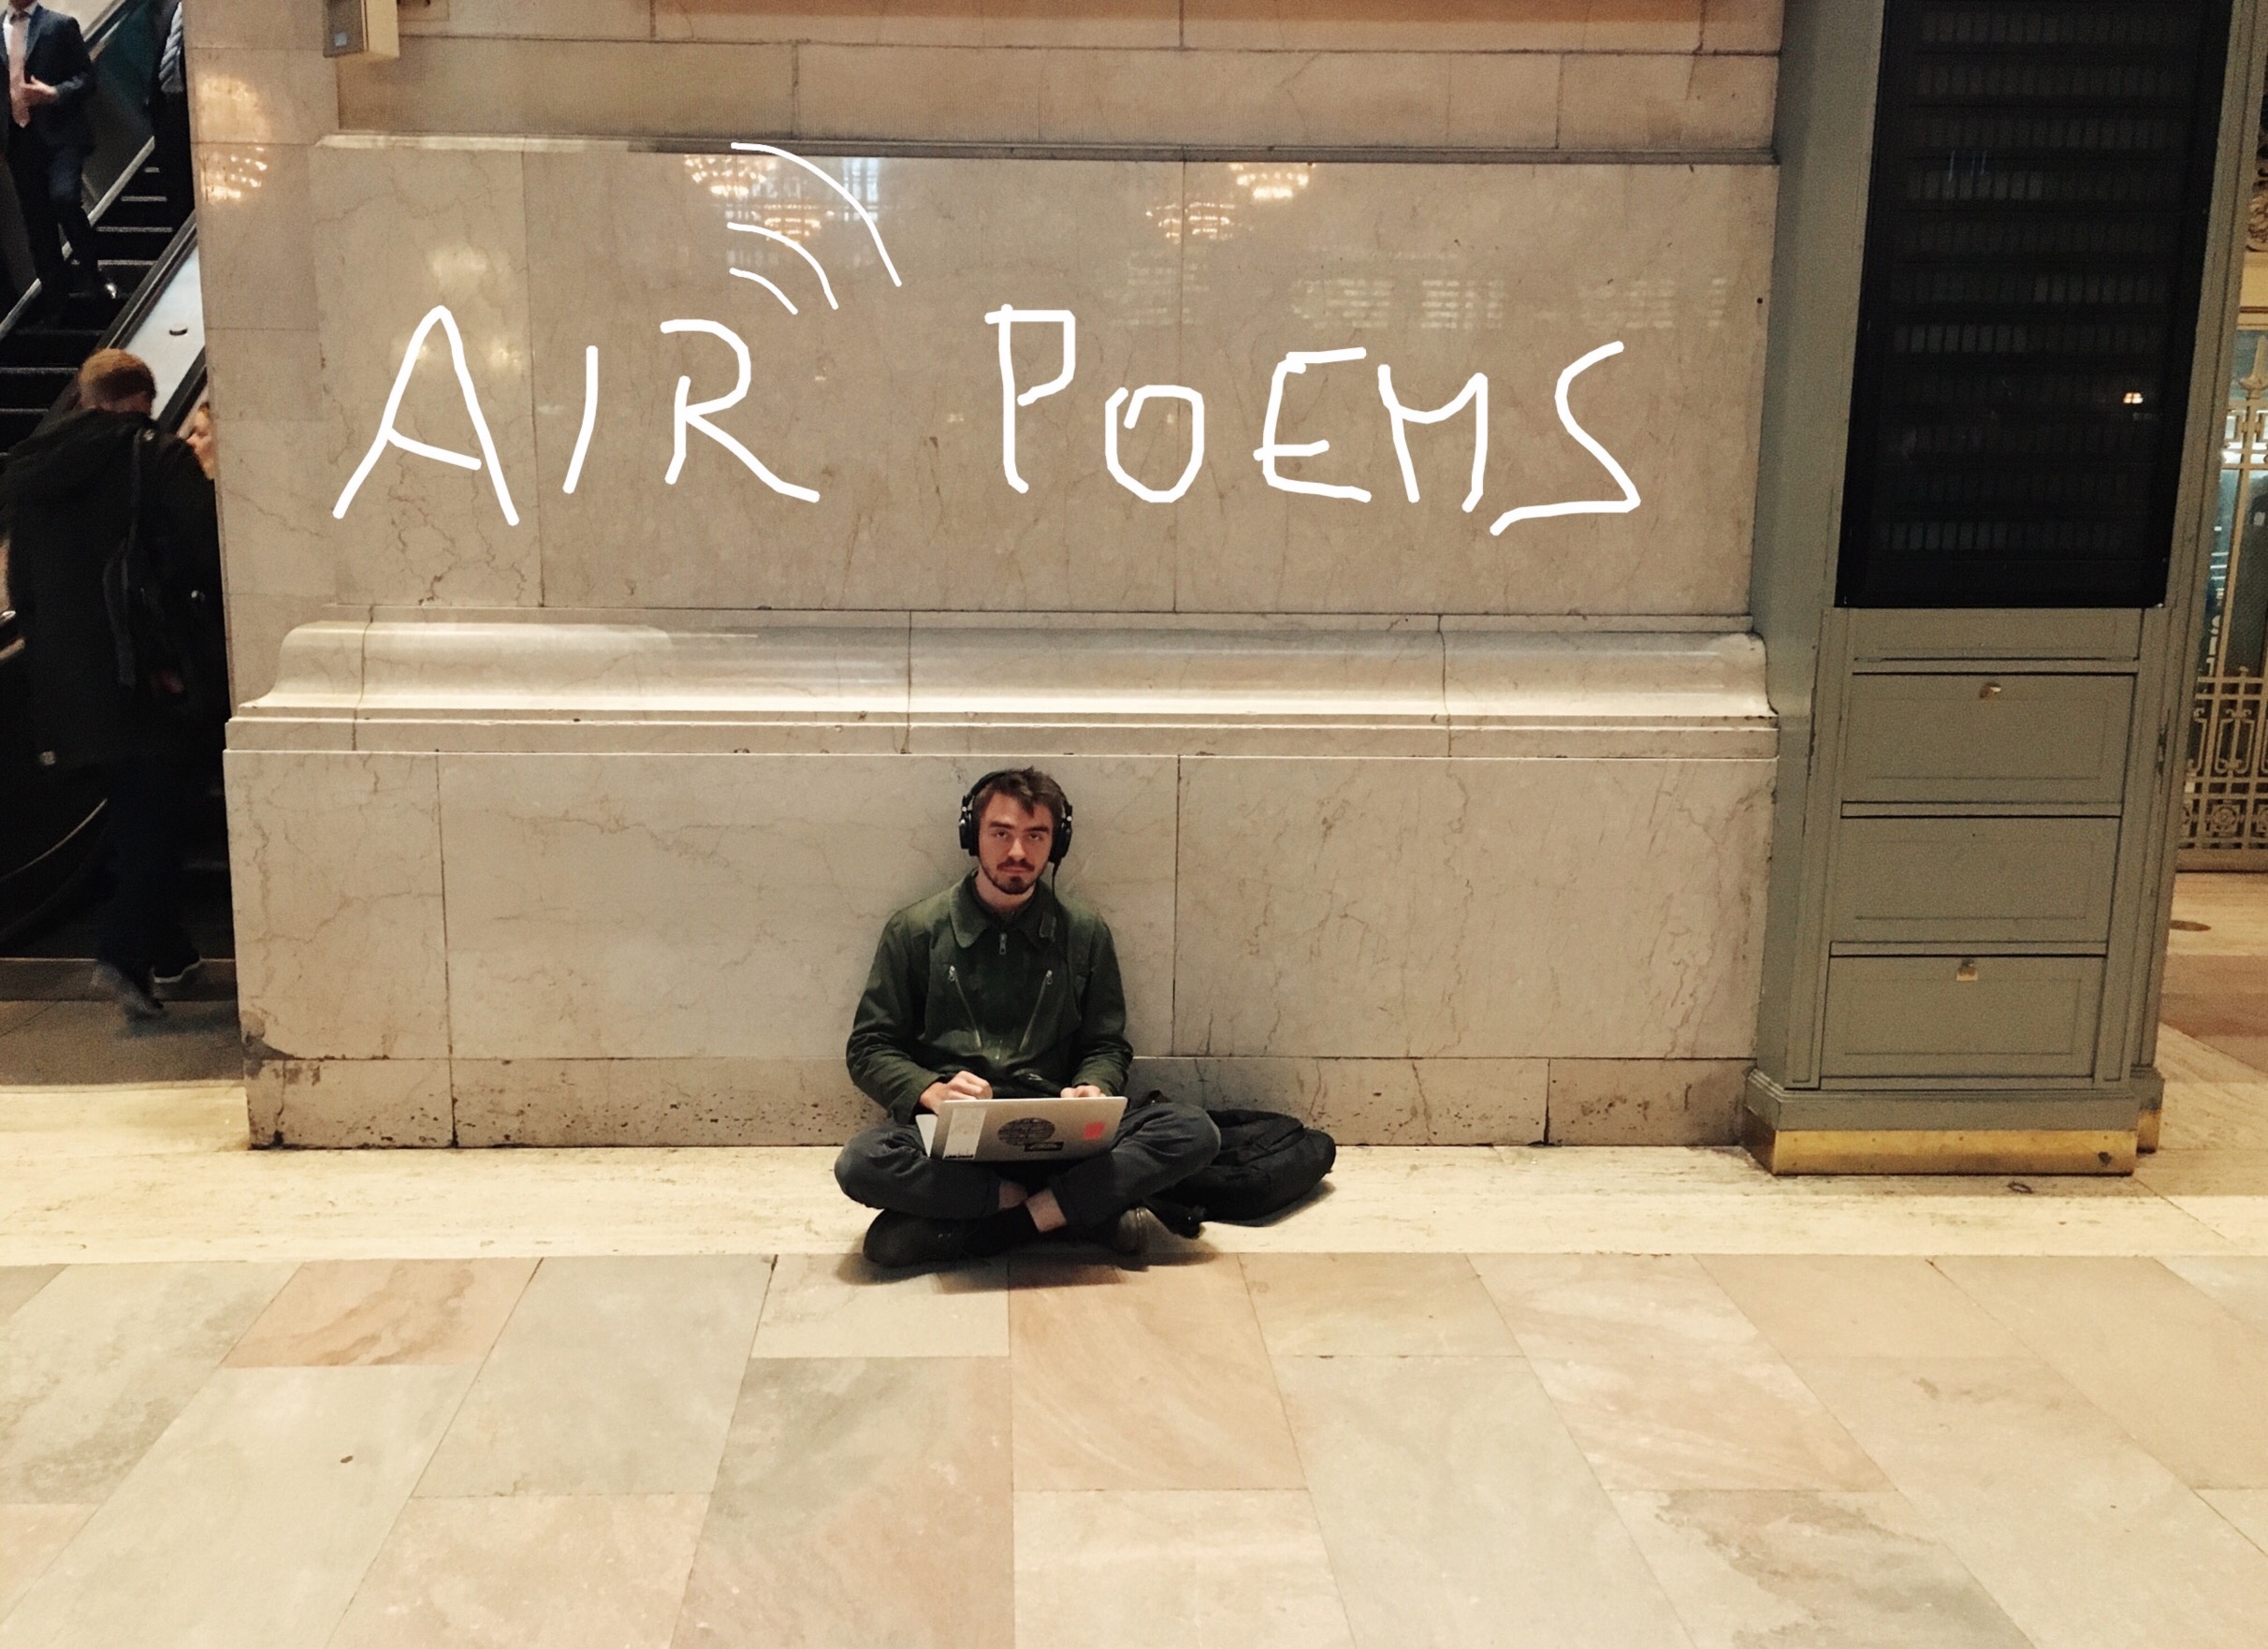 AIR POEMS